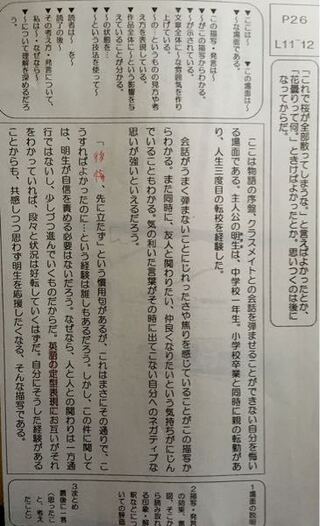 P26
L11~12
「これで桜が全部散ってしまうな」、と言えばよかったとか、
「花曇りって何?」ときけばよかったとか。思いつくのは後に
なってからだ。
▼ここは~ ▼この場面は~
な場面である。
▼この描写・発言は~
▼この描写からわかる。
が示されている。
▼文章全体に~な雰囲気を作り
▼~のというものの見方や考
え方を表現している。
▼作品全体に~という影響を与
えていることが分かる。
▼~の状態を…
~という技法を使って~
読者は~を
▼読了の後~
▼その考え方・発言について、
私は~・なぜなら~
▼~について理解を深めるだろ
う。
ここは物語の序盤、クラスメイトとの会話を弾ませることができない自分を悔い
る場面である。主人公の明生は、中学校一年生。小学校卒業と同時に親の転勤があ
り、人生三度目の転校を経験した。
会話がうまく弾まないことにじれったさや焦りを感じていることがこの描写か
らわかる。また同時に、友人と関わりたい、仲良くなりたいという気持ちがにじん
でいることもわかる。気の利いた言葉がその時に出てこない自分へのネガティブな
思いが強いといえるだろう。
「後悔、先に立たず」という慣用句があるが、これはまさにその通りで、こ
うすればよかったのに…という経験は誰しもあるだろう。しかし、この件に関して
は、明生が自信を責める必要はないだろう。なぜなら、人と人との関わりは一方通
行ではないし、少しづつ進んでいくものだからだ。英語の定型表現にお互いがそれ
をわかっていれば、段々と状況は好転していくはずだ。自分にそうした経験がある
ことからも、共感しつつ思わず明生を応援したくなる、そんな描写である。
1場面の説明
2描写・発
3まとめ
最後に一言
(思ったこ
と、考え
たこと)